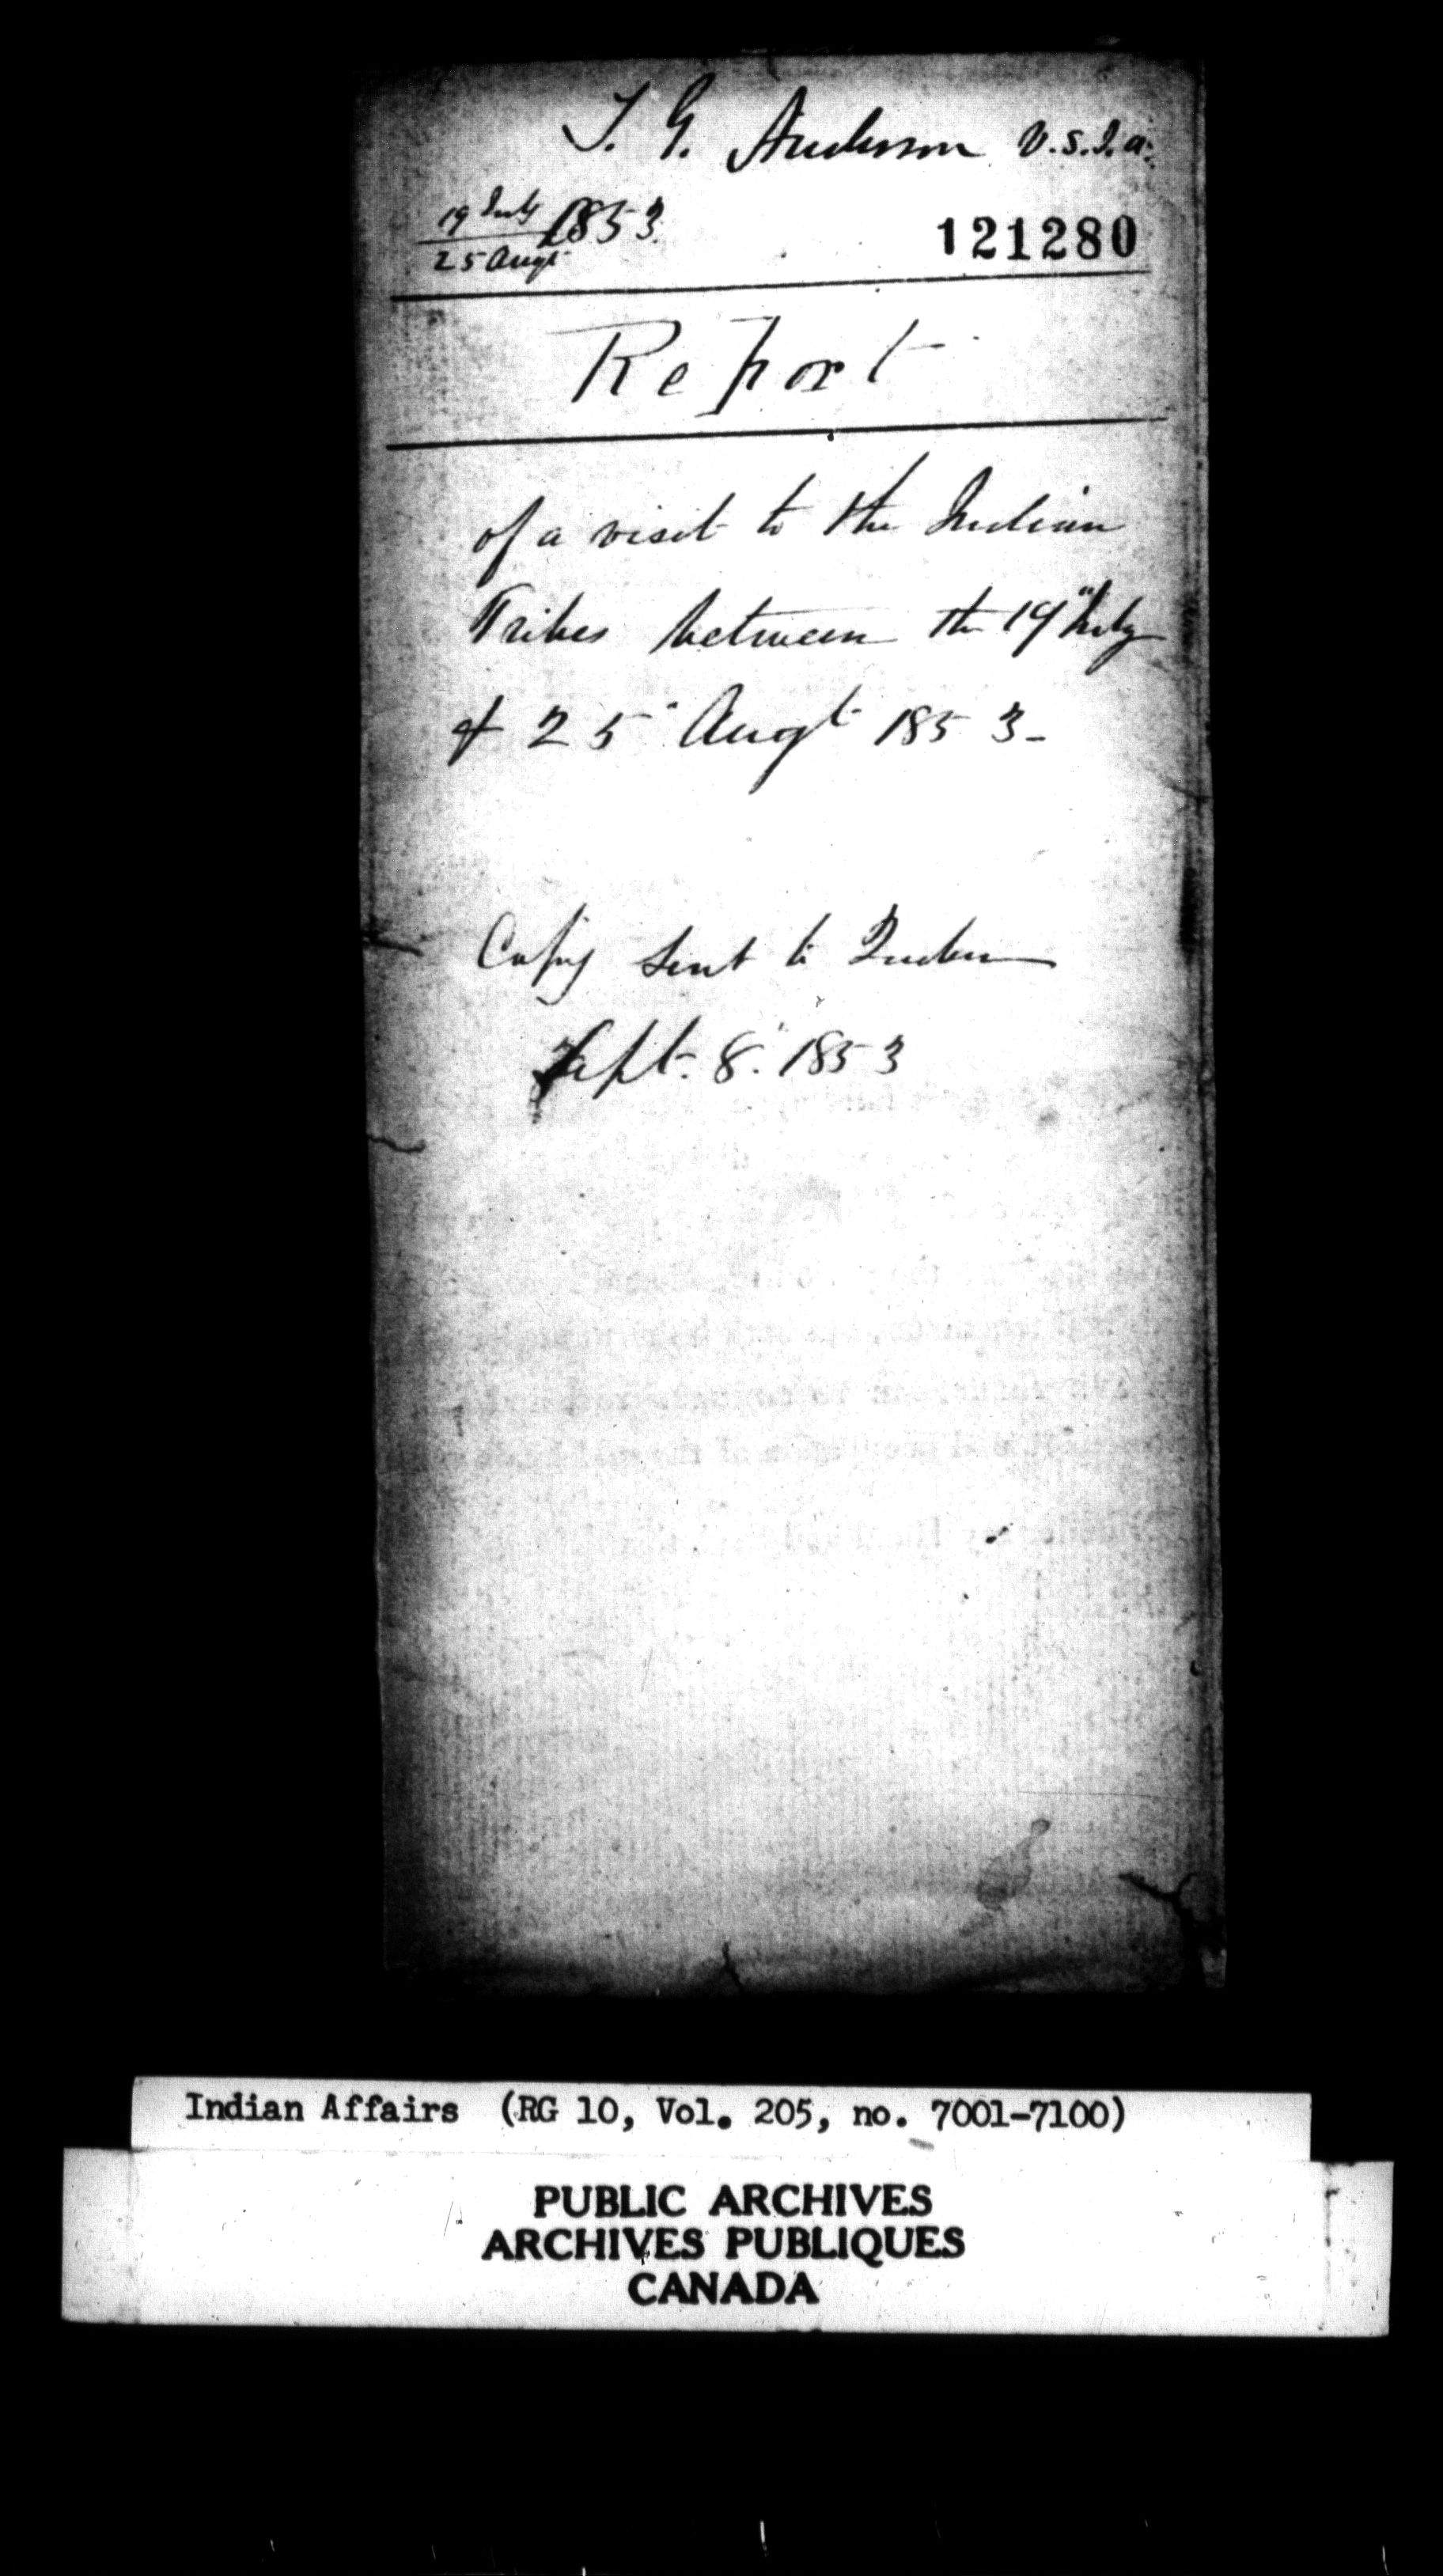 T. G. Anderson V.S.I.a.
19 July 1853
25 Augt
121280
Report
of a visit to the Indian
Tribes between the 19" July
& 25" Augt 1853-
Copy sent to Quebec
Sept. 8. 1853
Indian Affairs (RG 10, Vol. 205, no. 7001-7100)
PUBLIC ARCHIVES
ARCHIVES PUBLIQUES
CANADA